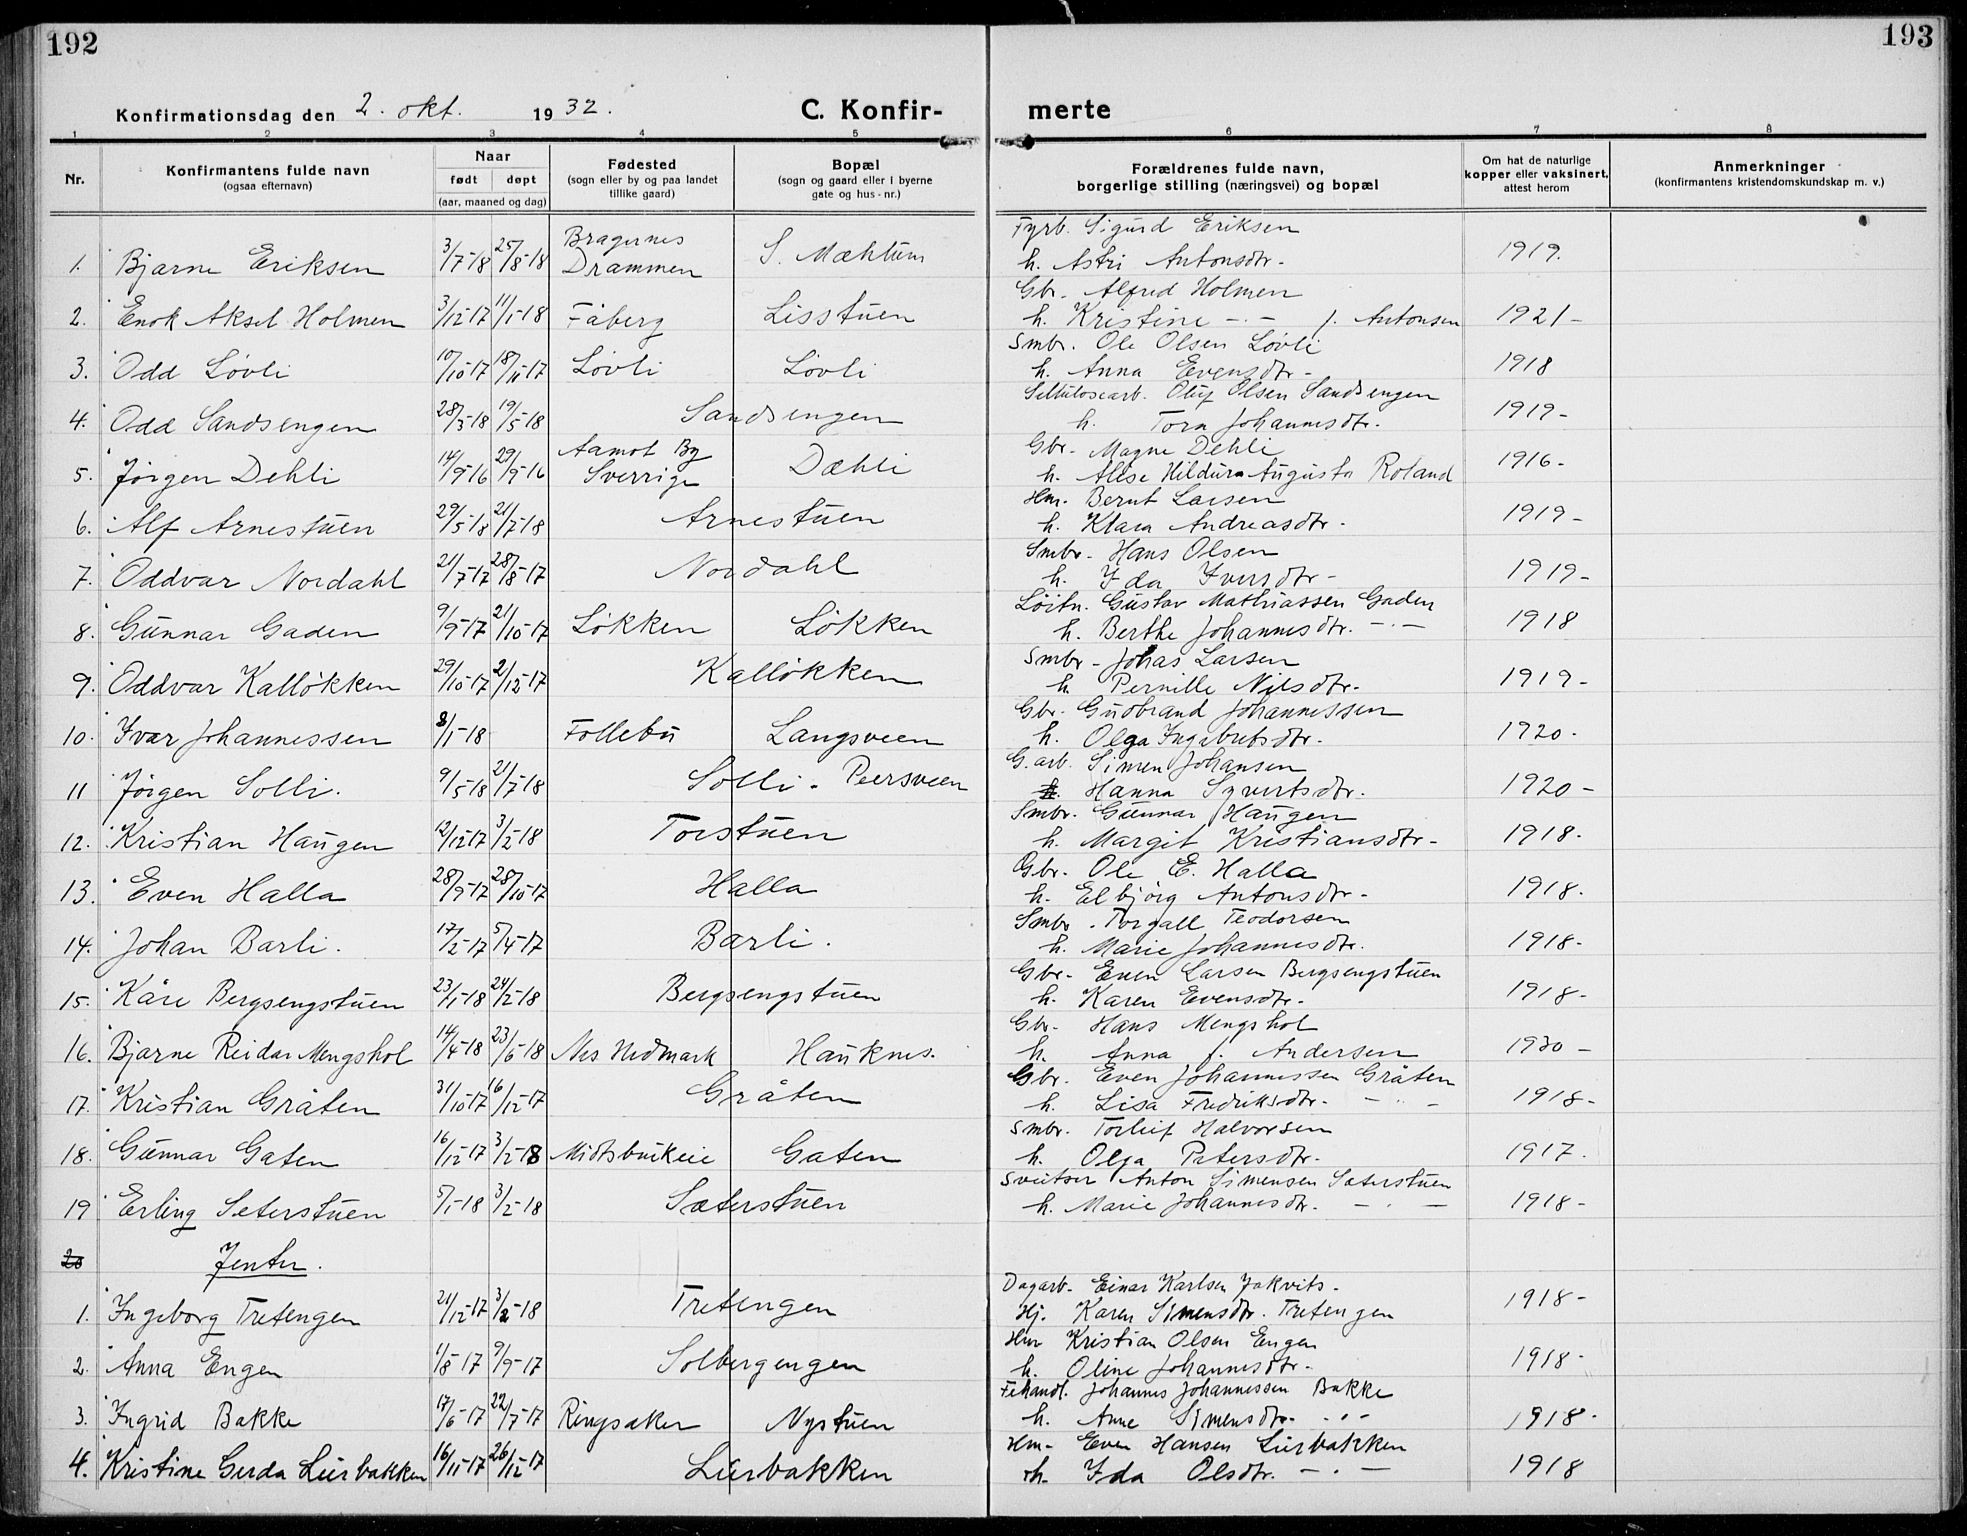 192
193
Konfirmationsdag den 2. okt. 1932.
C. Konfir-
merte
1 2 3 4 5 6 7 8
Nr.
Konfirmantens fulde navn
(ogsaa efternavn)
Naar
født døpt
(aar, maaned og dag)
Fødested
(sogn eller by og paa landet
tillike gaard)
Bopæl
(sogn og gaard eller i byerne
gate og hus-nr.)
Forældrenes fulde navn,
borgerlige stilling (næringsvei) og bopæl
Om hat de naturlige
kopper eller vaksinert,
attest herom
Anmerkninger
(konfirmantens kristendomskundskap m. v.)
Bragernes Fyrb. Sigurd Eriksen
1. Bjarne Eriksen 3/7-18 25/8-18 Drammen S. Mæhlum h. Astri Antonsdtr. 1919.
Gbr. Alfred Holmen
2. Enok Aksel Holmen 3/12-17 11/1-18 Fåberg Lisstuen h. Kristine -.- f. Antonsen 1921-
Smbr. Ole Olsen Løvli
3. Odd Løvli 10/10-17 18/11-17 Løvli Løvli h. Anna Evensdtr- 1918
Sellulosearb. Oluf Olsen Sandsengen
4. Odd Sandsengen 28/3-18 19/5-18 Sandsengen h. Tora Johannesdtr. 1919-
Aamot By Gbr. Magne Dehli
5. Jørgen Dehli 14/9-16 29/9-16 Sverrige Dæhli h. Alise Hildura Augusta Roland 1916-
Hm. Bernt Larsen
6. Alf Arnestuen 29/5-18 21/7-18 Arnestuen h. Klara Andreasdtr- 1919-
Smbr- Hans Olsen
7. Oddvar Nordahl 21/7-17 28/8-17 Nordahl h. Ida Iversdtr- 1919-
Løitn. Gustav Mathiassen Gaden
8. Gunnar Gaden 9/9-17 21/10-17 Løkken Løkken h. Berthe Johannesdtr. -.- 1918
Smbr- Johas Larsen
9. Oddvar Kalløkken 29/10-17 2/12-17 Kalløkken h. Pernille Nilsdtr- 1919-
Gbr. Gudbrand Johannessen
10. Ivar Johannessen 8/1-18 Follebu Langsveen h. Olga Ingebretsdtr. 1920.
G.arb. Simen Johansen
11 Jørgen Solli. 9/5-18 21/7-18 Solli. Peersveen h. Hanna Syvertsdtr. 1920-
Smbr. Gunnar Haugen
12. Kristian Haugen 12/12-17 3/2-18 Torstuen h. Margit Kristiansdtr- 1918.
Gbr. Ole E. Halla
13. Even Halla 28/9-17 28/10-17 Halla h. Elbjørg Antonsdtr- 1918.
Smbr. Torgall Teodorsen
14. Johan Barli. 17/2-17 5/4-17 Barli. h. Marie Johannesdtr. 1918-
Gbr- Even Larsen Bergsengstuen
15. Kåre Bergsengstuen 23/1-18 24/2-18 Bergsengstuen h. Karen Evensdtr. 1918-
Gbr- Hans Mengshol
16. Bjarne Reidar Mengshol 14/4-18 23/6-18 Nes Hedmark Hauknes. h. Anna f. Andersen 1930-
Gbr. Even Johannessen Gråten
17. Kristian Gråten 31/10-17 16/12-17 Gråten h. Lisa Fredriksdtr. 1918-
Smbr. Torleif Halvorsen
18. Gunnar Gaten 16/12-17 3/2-18 Midtsbukeie Gaten h. Olga Petersdtr. 1917.
Sveitser Anton Simensen Sæterstuen
19 Erling Seterstuen 5/1-18 3/2-18 Sæterstuen h. Marie Johannesdtr. - . - 1918-
20 Jenter.
Dagarb. Einar Karlsen Jakvits.
1. Ingeborg Tretengen 21/12-17 3/2-18 Tretengen Hj. Karen Simensdtr. Tretengen 1918-
Hm Kristian Olsen Engen
2. Anna Engen 1/8-17 9/9-17 Solbergengen h. Oline Johannesdtr. 1918-
Fehandl. Johannes Johannessen Bakke
3. Ingrid Bakke 17/6-17 22/7-17 Ringsaker Nystuen h. Anne Simensdtr. -.- 1918-
Hm- Even Hansen Lurbakken
4. Kristine Gerda Lurbakken 16/11-17 26/12-17 Lurbakken h. Ida Olsdtr. - . - 1918